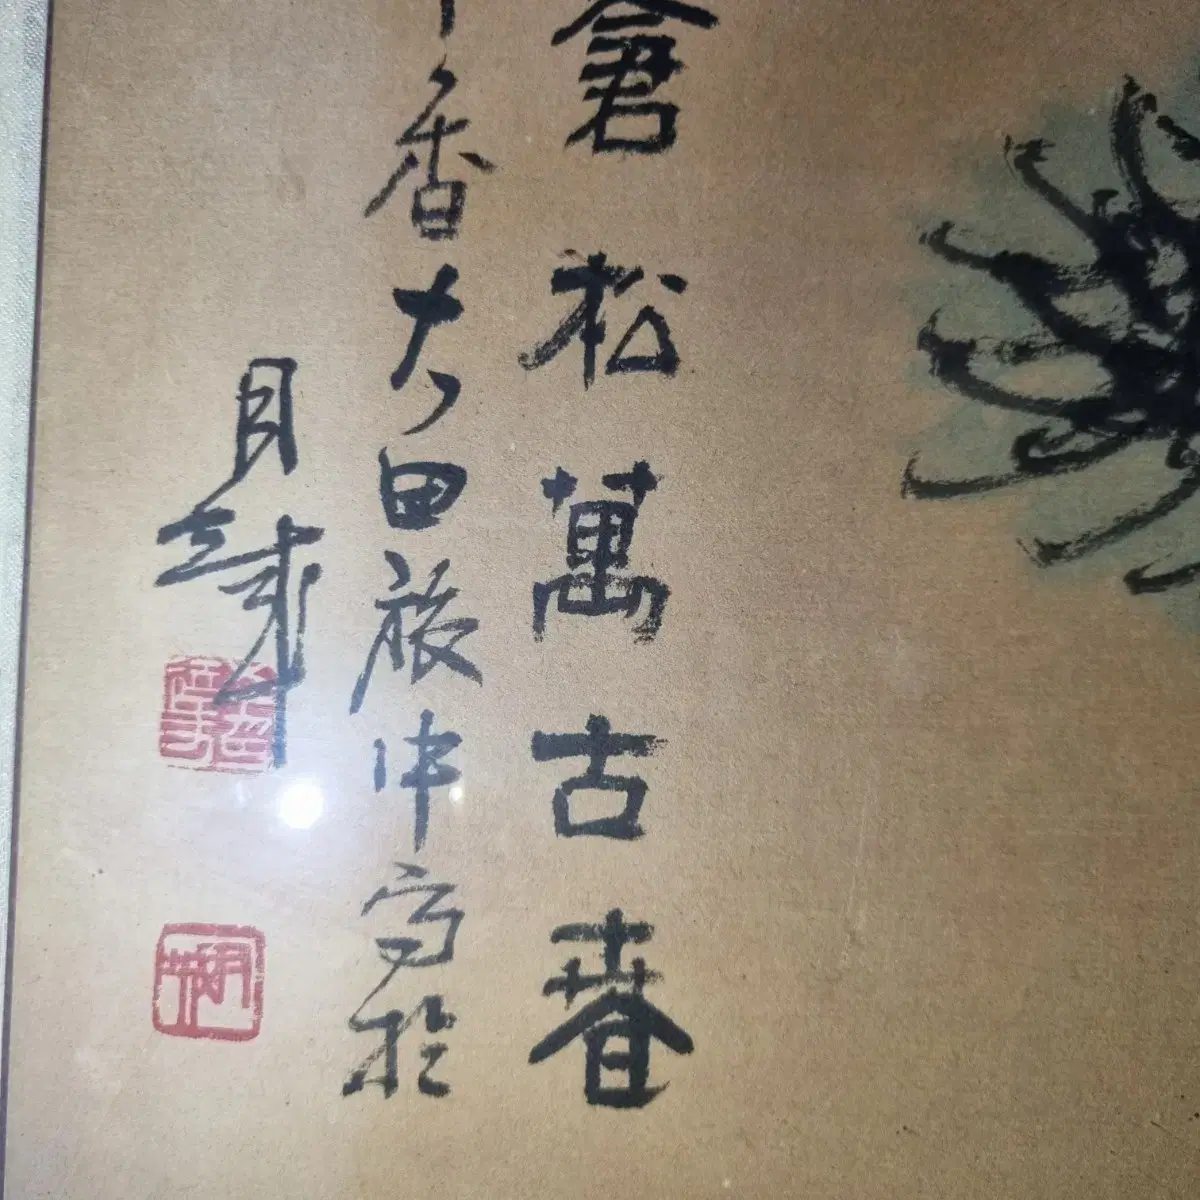 倉松萬古春
香大田旅中寫於
月